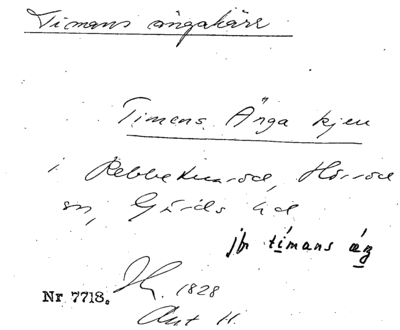 Timans ängakärr
Timens Änga kjeu
i Rebbetuaröd, Hörröds
sn, Gärds hd
jfr tímans ág
Nr 7718. 1828
Akt 11.